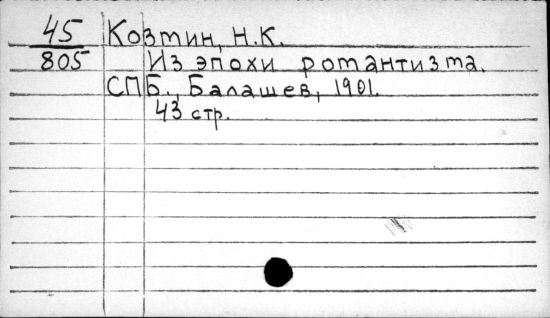 45 Козмин, Н.К.
805 Из эпохи романтизма.
СПБ., Балашев, 1901.
43 стр.